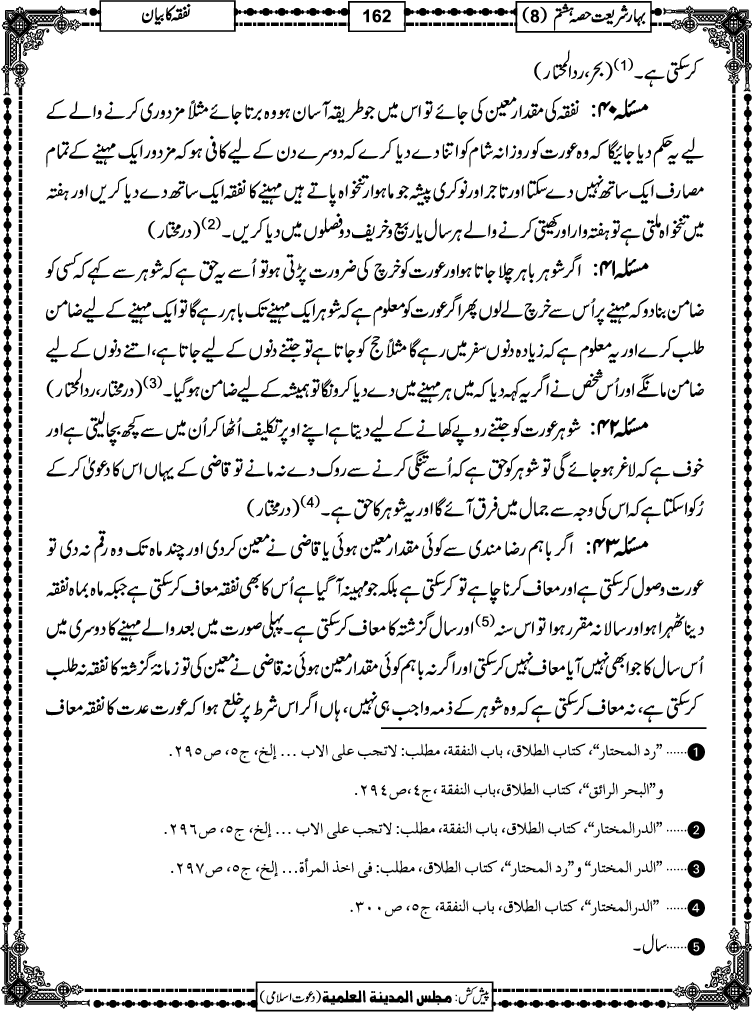 بہارِ شریعت حصہ ہشتم (8)
162
نفقہ کا بیان
کرسکتی ہے۔(1) (بحر، ردالمحتار)
مسئلہ ۴۰: نفقہ کی مقدار معین کی جائے تو اس میں جو طریقہ آسان ہو وہ برتا جائے مثلاً مزدوری کرنے والے کے
لیے یہ حکم دیا جائیگا کہ وہ عورت کو روزانہ شام کو اتنا دے دیا کرے کہ دوسرے دن کے لیے کافی ہو کہ مزدور ایک مہینے کے تمام
مصارف ایک ساتھ نہیں دے سکتا اور تاجر اور نوکری پیشہ جو ماہوار تنخواہ پاتے ہیں مہینے کا نفقہ ایک ساتھ دے دیا کریں اور ہفتہ
میں تنخواہ ملتی ہے تو ہفتہ وار اور کھیتی کرنے والے ہر سال یا ربیع و خریف دو فصلوں میں دیا کریں۔(2) (درمختار)
مسئلہ ۴۱: اگر شوہر باہر چلا جاتا ہو اور عورت کو خرچ کی ضرورت پڑتی ہو تو اُسے یہ حق ہے کہ شوہر سے کہے کہ کسی کو
ضامن بنا دو کہ مہینے پر اُس سے خرچ لے لوں پھر اگر عورت کو معلوم ہے کہ شوہر ایک مہینے تک باہر رہے گا تو ایک مہینے کے لیے ضامن
طلب کرے اور یہ معلوم ہے کہ زیادہ دنوں سفر میں رہے گا مثلاً حج کو جاتا ہے تو جتنے دنوں کے لیے جاتا ہے، اتنے دنوں کے لیے
ضامن مانگے اور اُس شخص نے اگر یہ کہہ دیا کہ میں ہر مہینے میں دے دیا کرونگا تو ہمیشہ کے لیے ضامن ہوگیا۔(3) (درمختار، ردالمحتار)
مسئلہ ۴۲: شوہر عورت کو جتنے روپے کھانے کے لیے دیتا ہے اپنے اوپر تکلیف اُٹھا کر اُن میں سے کچھ بچا لیتی ہے اور
خوف ہے کہ لاغر ہو جائے گی تو شوہر کو حق ہے کہ اُسے تنگی کرنے سے روک دے نہ مانے تو قاضی کے یہاں اس کا دعویٰ کر کے
رُکوا سکتا ہے کہ اس کی وجہ سے جمال میں فرق آئے گا اور یہ شوہر کا حق ہے۔(4) (درمختار)
مسئلہ ۴۳: اگر باہم رضا مندی سے کوئی مقدار معین ہوئی یا قاضی نے معین کر دی اور چند ماہ تک وہ رقم نہ دی تو
عورت وصول کر سکتی ہے اور معاف کرنا چاہے تو کر سکتی ہے بلکہ جو مہینہ آ گیا ہے اُس کا بھی نفقہ معاف کر سکتی ہے جبکہ ماہ بماہ نفقہ
دینا ٹھہرا ہو اور سالانہ مقرر ہوا تو اس سنہ(5) اور سال گزشتہ کا معاف کر سکتی ہے۔ پہلی صورت میں بعد والے مہینے کا دوسری میں
اُس سال کا جو ابھی نہیں آیا معاف نہیں کر سکتی اور اگر نہ باہم کوئی مقدار معین ہوئی نہ قاضی نے معین کی تو زمانۂ گزشتہ کا نفقہ نہ طلب
کر سکتی ہے، نہ معاف کر سکتی ہے کہ وہ شوہر کے ذمہ واجب ہی نہیں، ہاں اگر اس شرط پر خلع ہوا کہ عورت عدت کا نفقہ معاف
1...... "رد المحتار"، کتاب الطلاق، باب النفقة، مطلب: لاتجب علی الاب ... إلخ، ج٥، ص٢٩٥.
و"البحر الرائق"، کتاب الطلاق، باب النفقة، ج٤، ص٢٩٤.
2...... "الدرالمختار"، کتاب الطلاق، باب النفقة، مطلب: لاتجب علی الاب ... إلخ، ج٥، ص٢٩٦.
3...... "الدر المختار" و"رد المحتار"، کتاب الطلاق، مطلب: فی اخذ المرأة... إلخ، ج٥، ص٢٩٧.
4...... "الدرالمختار"، کتاب الطلاق، باب النفقة، ج٥، ص٣٠٠.
5......سال۔
پیش کش: مجلس المدینة العلمیة (دعوت اسلامی)